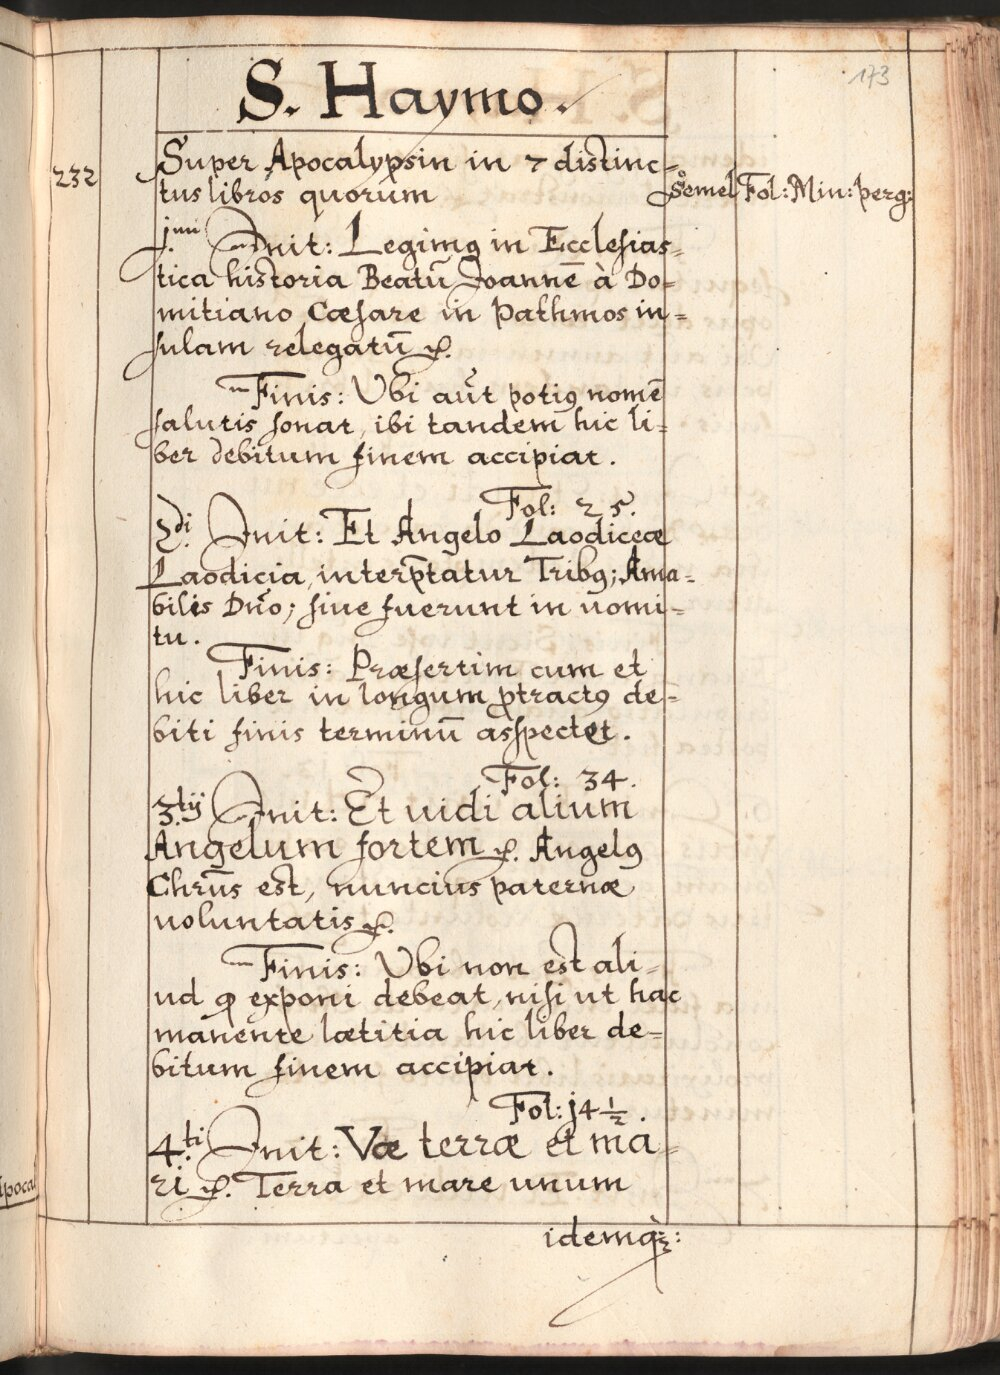 173
S. Haymo.
232 Super Apocalypsin in 7 distinc=
tus libros quorum Semel Fol: Min: perg:
j.mi Init: Legimꝯ in Ecclesias=
tica historia Beatū Joannē à Do=
mitiano Cæsare in Pathmos in=
sulam relegatū &.
Finis: Ubi aut̃ potiꝯ nomē
salutis sonat, ibi tandem hic li=
ber debitum finem accipiat.
Fol: 25.
2.di Init: Et Angelo Laodiceæ
Laodicia, interp̄tatur Tribꝯ; Ama=
bilis Dño; siue fuerunt in uomi=
tu.
Finis: Præsertim cum et
hic liber in longum ꝓtractꝯ de=
biti finis terminū asspectet.
Fol: 34.
3.tij Init: Et uidi alium
Angelum fortem &. Angelꝯ
Chrūs est, nuncius paternæ
uoluntatis &.
Finis: Ubi non est ali=
ud ꝙ exponi debeat, nisi ut hac
manente lætitia hic liber de=
bitum finem accipiat.
Fol: j4½.
4.ti Init: Væ terræ et ma=
ri &. Terra et mare unum
Apoca
idemq̀ꝫ: